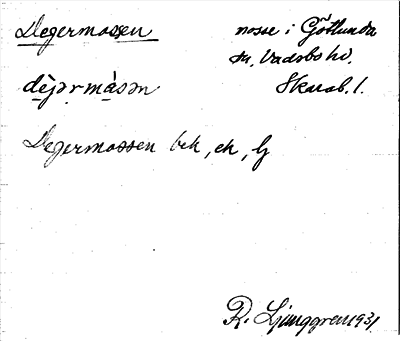 Degermossen
mosse i Götlunda
sn, Vadsbo hd,
Skarab. l.
dèjərmåsən
Degermossen bek, ek, lj
R. Ljunggren 1931